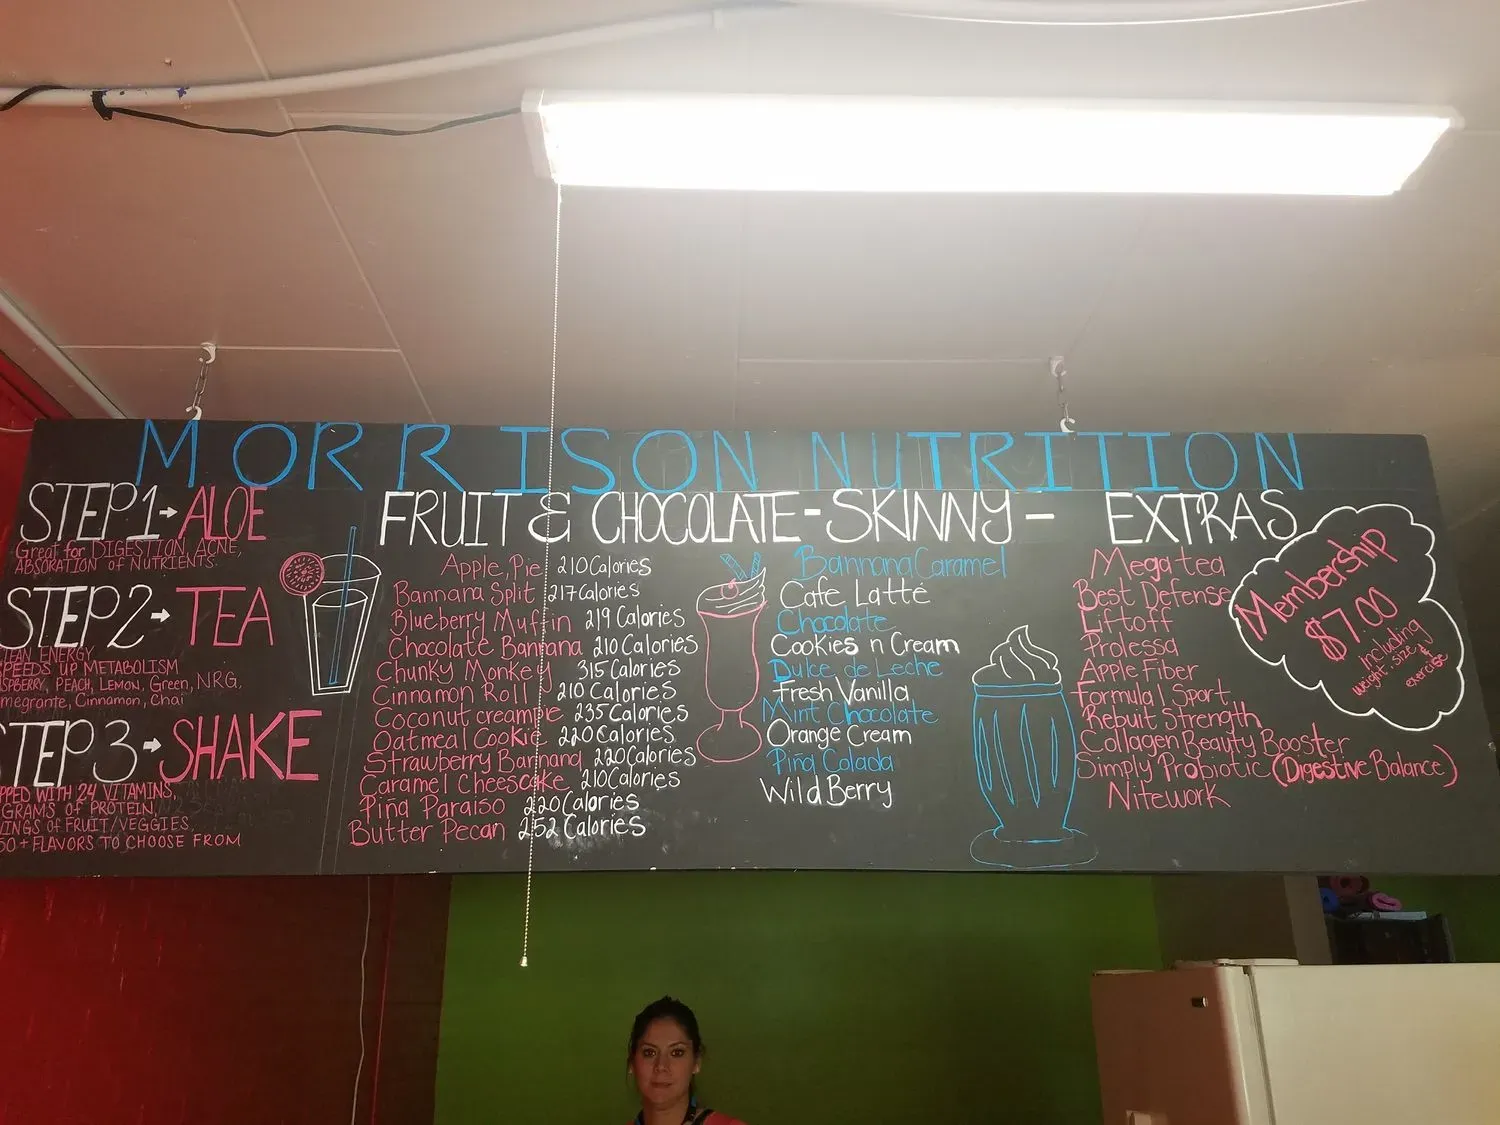 MORRISON NUTRITION
STEP 1→ ALOE
Great for DIGESTION, ACNE,
ABSORATION of NUTRIENTS.
STEP2→ TEA
ENERGY
SPEEDS UP METABOLISM
PEACH, LEMON, Green, NRG,
Cinnamon, Chai
STEP3→SHAKE
WITH 24 VITAMINS,
GRAMS OF PROTEIN,
OF FRUIT/VEGGIES,
50+ FLAVORS TO CHOOSE FROM
FRUIT & CHOCOLATE-SKINNY-
Apple Pie 210 Calories
Bannana Split 217 Calories
Blueberry Muffin 219 Calories
Chocolate Bannana 210 Calories
Chunky Monkey 315 Calories
Cinnamon Roll 210 Calories
Coconut creampie 235 Calories
Oatmeal Cookie 220 Calories
Strawberry Bannana 220 Calories
Caramel Cheescake 210 Calories
Piña Paraiso 220 Calories
Butter Pecan 252 Calories
Bannana Caramel
Cafe Latté
Chocolate
Cookies n Cream
Dulce de Leche
Fresh Vanilla
Mint Chocolate
Orange Cream
Piña Colada
Wild Berry
EXTRAS
Mega tea
Best Defense
Liftoff
Prolessa
Apple Fiber
Formula 1 Sport
Rebuit Strength
Collagen Beauty Booster
Simply Probiotic (Digestive Balance)
Nitework
Membership
$7.00
Including
weight, size &
exercise